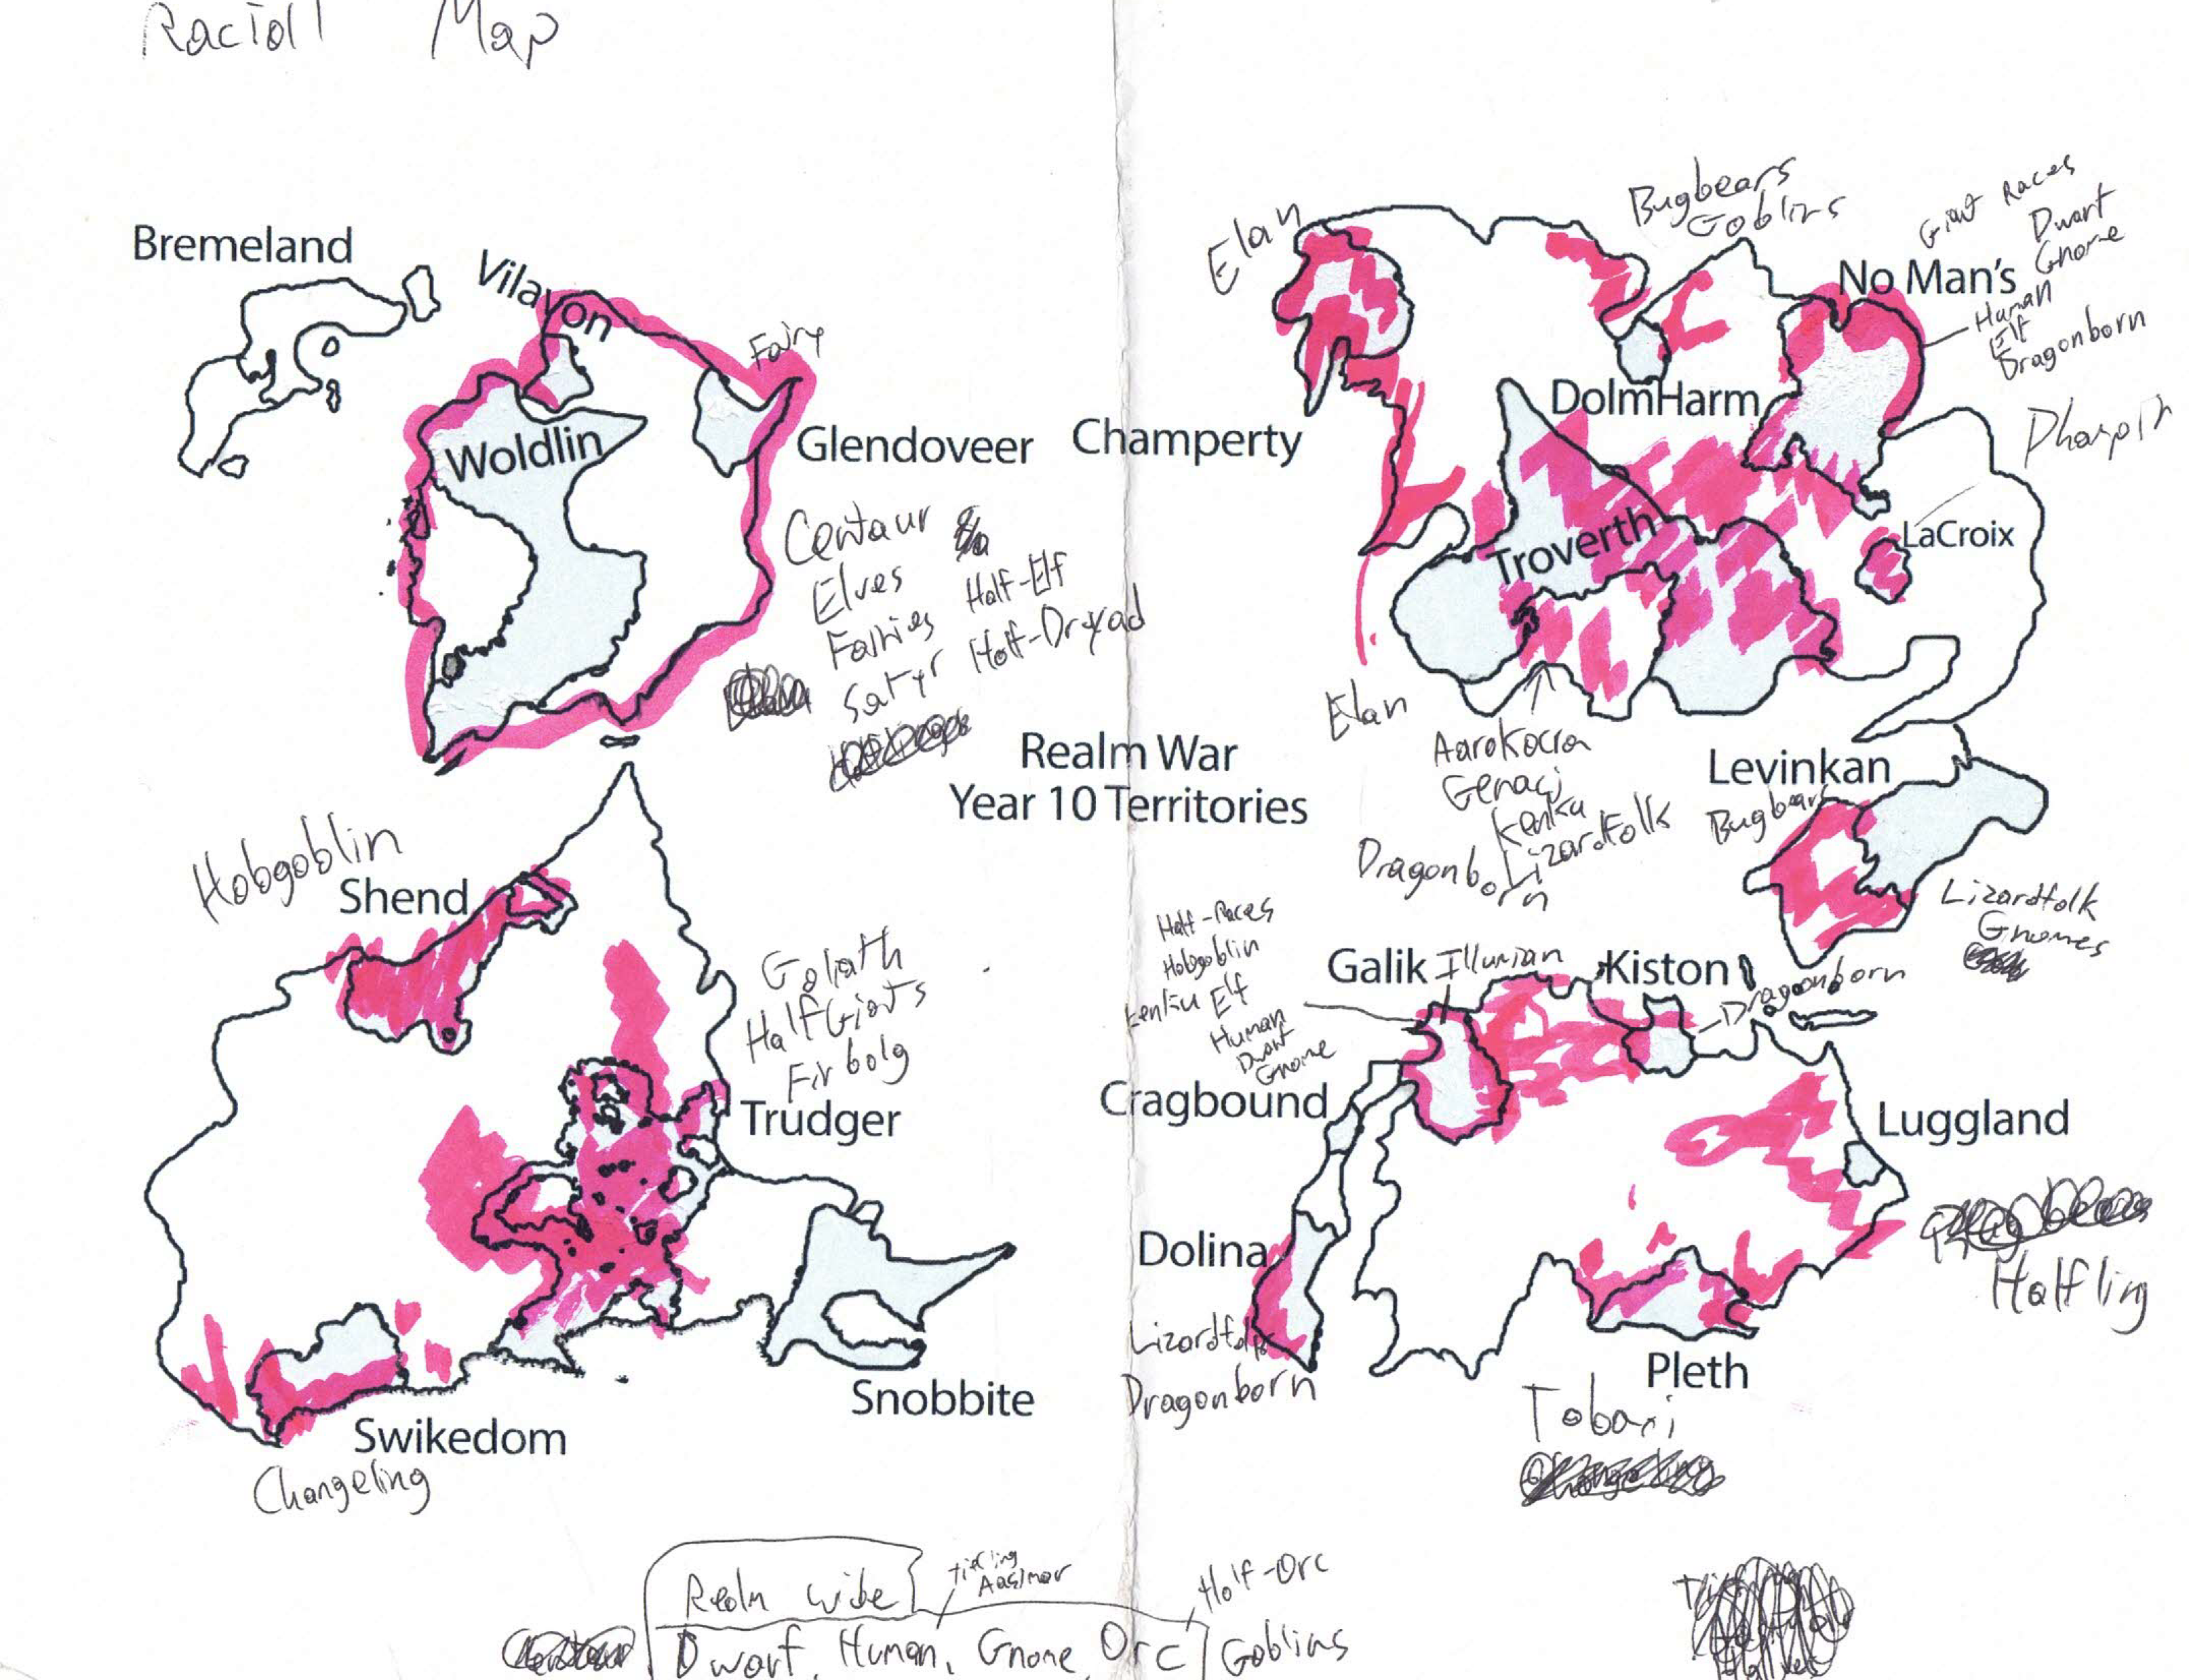 Raciall Map
Bremeland
Vilayon
Fairy
Woldlin
Glendoveer
Centaur
Elves Half-Elf
Fairies Half-Dryad
Satyr
Elan
Bugbears
Goblins
Giant Races
Dwarf
Gnome
No Man's
Human
Elf
Dragonborn
DolmHarm
Champerty
Troverth
LaCroix
Elan
Aarokocra
Genaci
Kenku
Lizardfolk
Dragonborn
Realm War
Year 10 Territories
Levinkan
Bugbears
Lizardfolk
Gnomes
Hobgoblin
Shend
Goliath
Half Giants
Firbolg
Trudger
Snobbite
Swikedom
Changeling
Half-Races
Hobgoblin
Kenku Elf
Human
Dwarf
Gnome
Galik Illurian
Kiston
Dragonborn
Cragbound
Luggland
Halfling
Dolina
Lizardfolk
Dragonborn
Pleth
Tobaxi
Realm wide
Tiefling
Aasimar
Half-Orc
Dwarf, Human, Gnome, Orc
Goblins